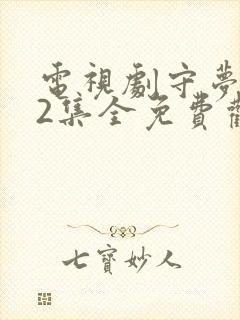 電視劇守夢
2集全免費
七寶妙人